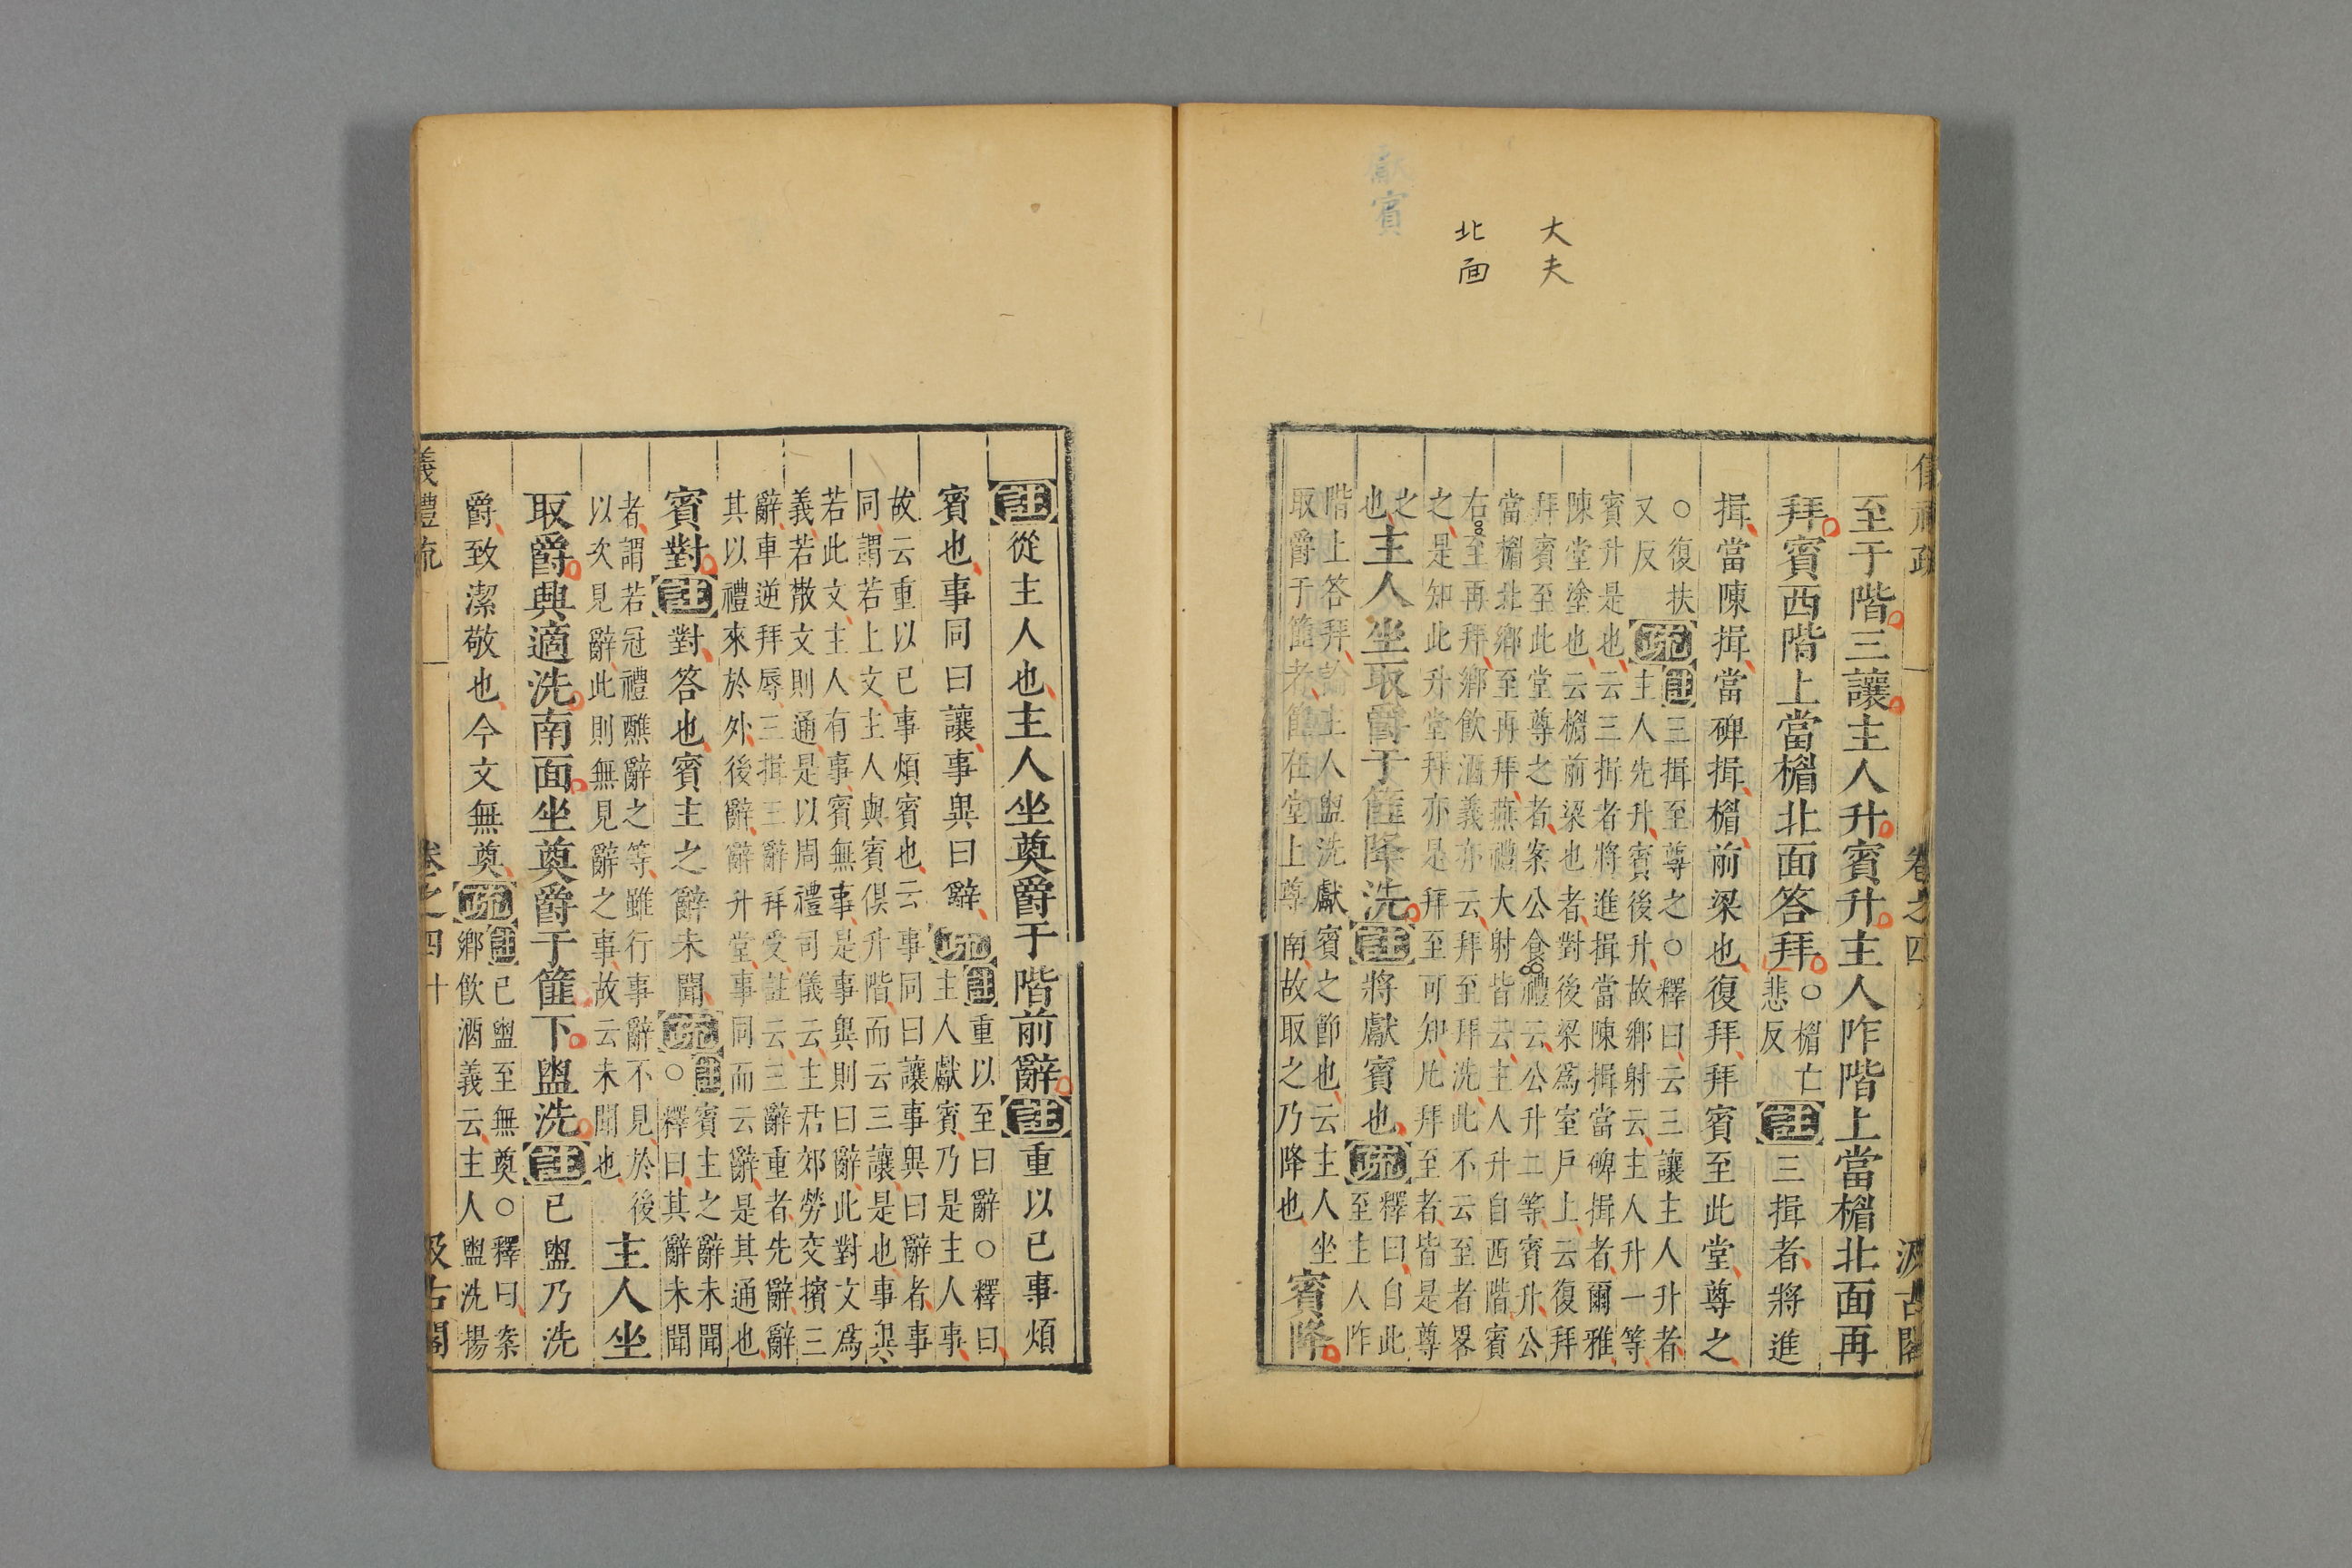 儀禮疏 卷之四 汲古閣
至于階三讓主人升賓升主人阼階上當楣北面再
拜賓西階上當楣北面答拜○楣亡
悲反註三揖者將進
揖當陳揖當碑揖楣前梁也復拜拜賓至此堂尊之
○復扶
又反疏註三揖至尊之○釋曰云三讓主人升者
主人先升賓後升故鄉射云主人升一等
賓升是也云三揖者將進揖當陳揖當碑揖者爾雅
陳堂塗也云楣前梁也者對後梁爲室戶上云復拜
拜賓至此堂尊之者案公食禮云公升二等賓升公
當楣北鄉至再拜燕禮大射皆云主人升自西階賓
右至再拜鄉飲酒義亦云拜至拜洗此不云至者畧
之是知此升堂拜亦是拜至可知凡拜至者皆是尊
之
也主人坐取爵于篚降洗註將獻賓也疏釋曰自此
至主人阼
階上答拜論主人盥洗獻賓之節也云主人坐
取爵于篚者篚在堂上尊南故取之乃降也賓降
大夫
北面
獻賓
註從主人也主人坐奠爵于階前辭註重以已事煩
賓也事同曰讓事異曰辭疏註重以至曰辭○釋曰
主人獻賓乃是主人事
故云重以已事煩賓也云事同曰讓事異曰辭者事
同謂若上文主人與賓俱升階而云三讓是也事異
若此文主人有事賓無事是事異則曰辭此對文爲
義若散文則通是以周禮司儀云主君郊勞交擯三
辭車逆拜辱三揖三辭拜受註云三辭重者先辭辭
其以禮來於外後辭辭升堂事同而云辭是其通也
賓對註對答也賓主之辭未聞疏註賓主之辭未聞
○釋曰其辭未聞
者謂若冠禮醮辭之等雖行事辭不見於後
以次見辭此則無見辭之事故云未聞也主人坐
取爵興適洗南面坐奠爵于篚下盥洗註已盥乃洗
爵致潔敬也今文無奠疏註已盥至無奠○釋曰案
鄉飲酒義云主人盥洗揚
儀禮疏 卷之四 十 汲古閣